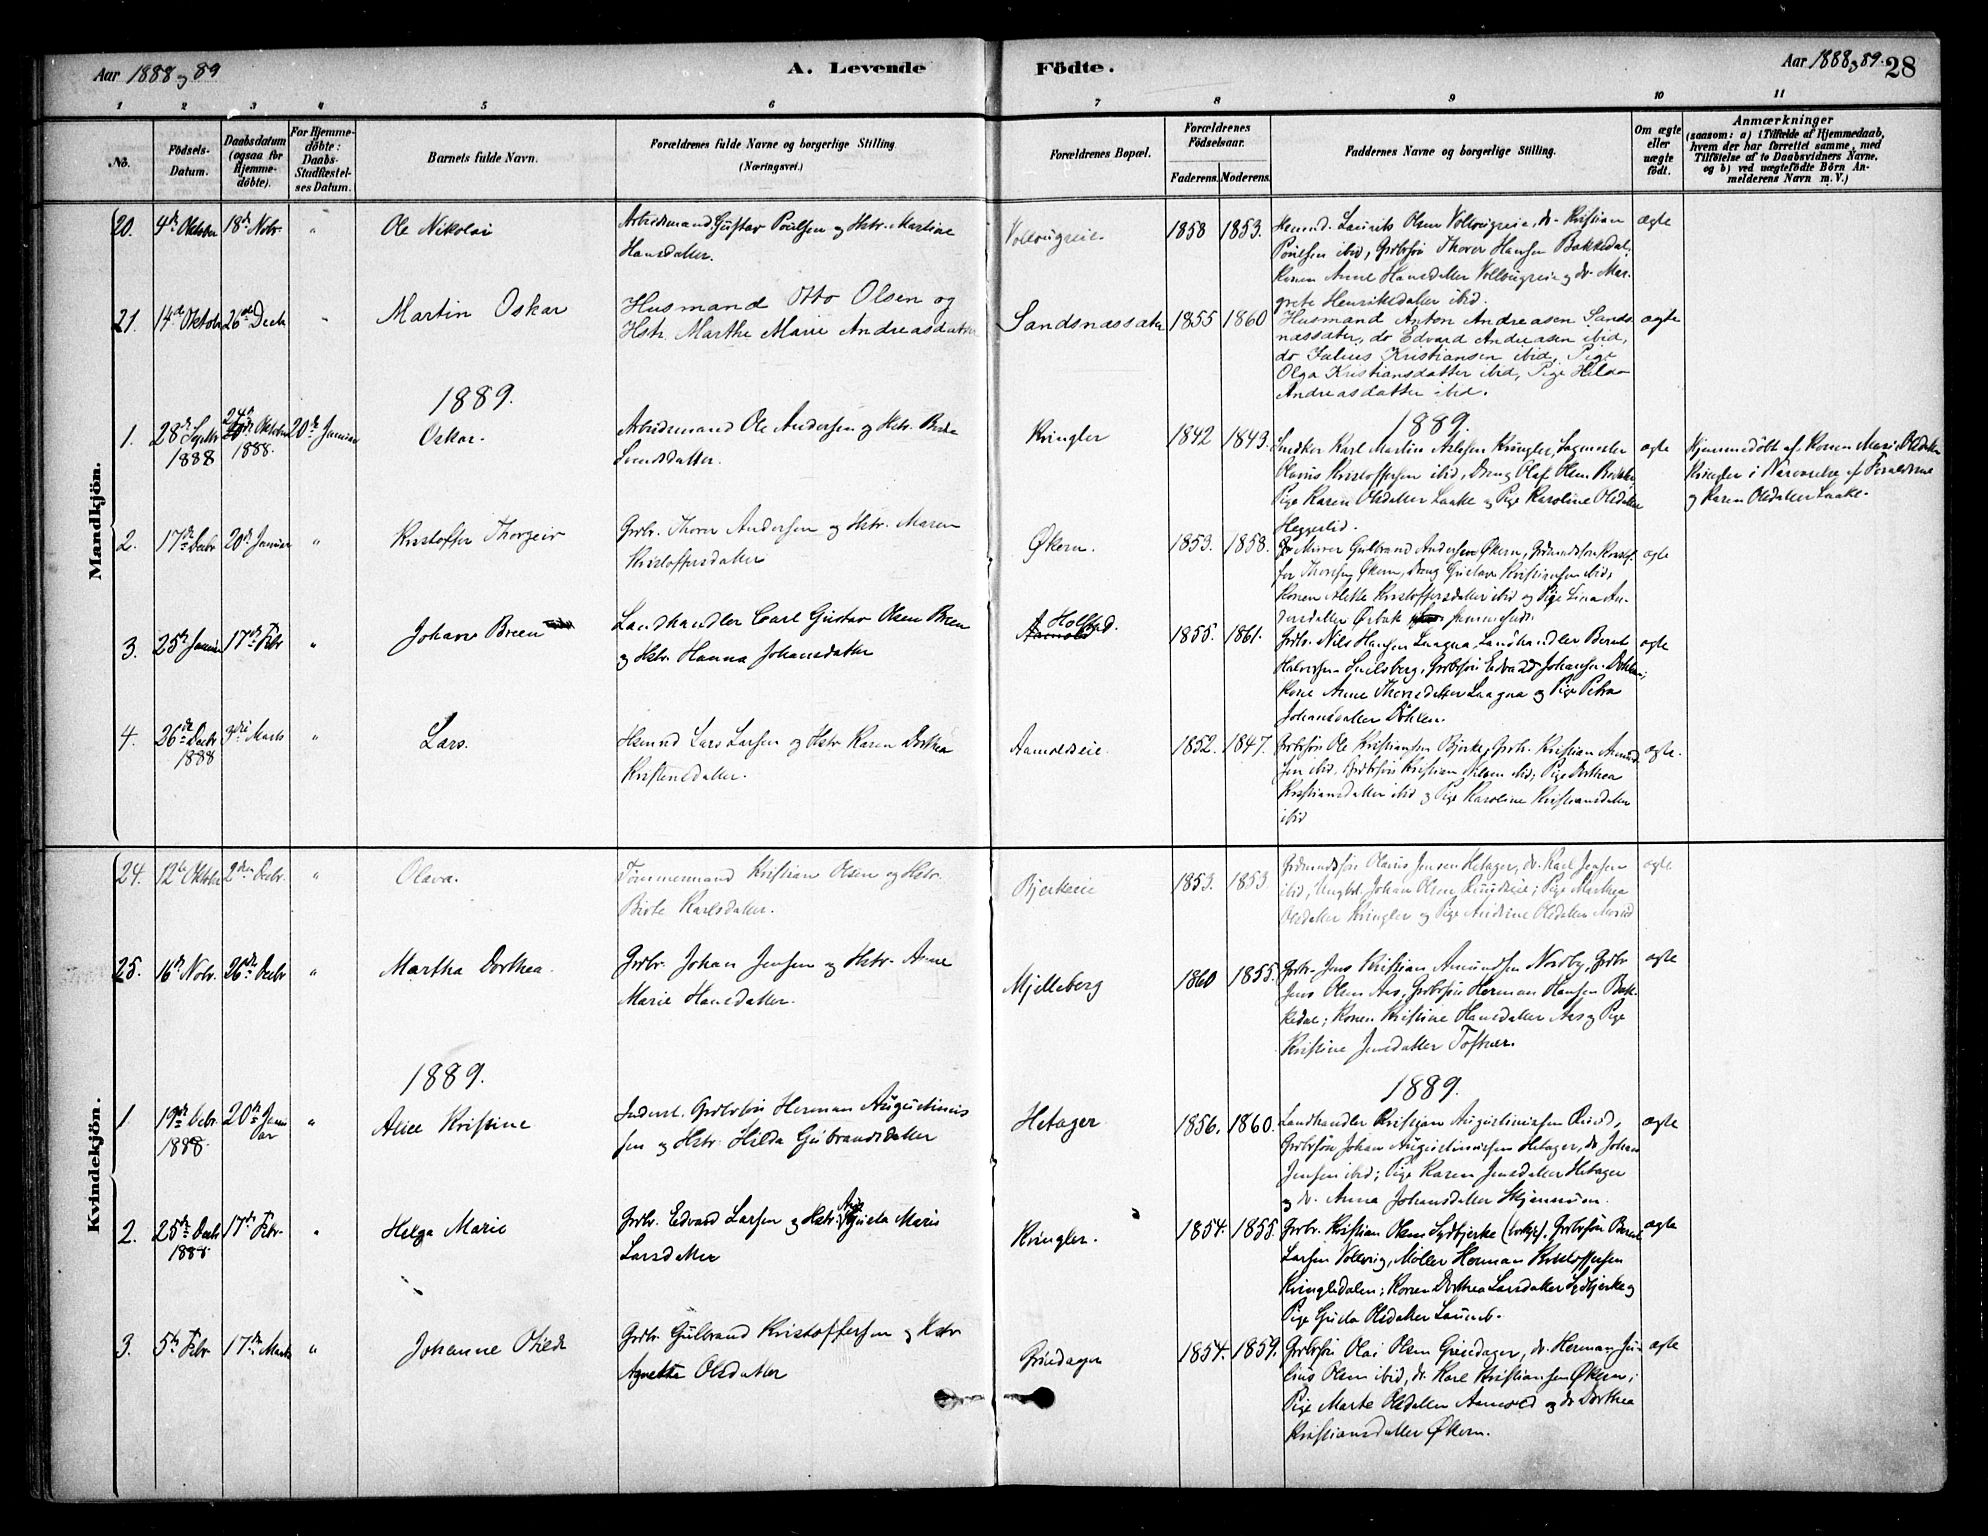 Aar 1888 og 89
A. Levende Födte.
Aar 1888 og 89. 28
1 2 3 4 5 6 7 8 9 10 11
No.
Födsels-Datum.
Daabsdatum (ogsaa for Hjemmedöbte).
For Hjemmedöbte: Daabs-Stadfæstelses Datum.
Barnets fulde Navn.
Forældrenes fulde Navne og borgerlige Stilling. (Næringsvei.)
Forældrenes Bopæl.
Forældrenes Födselsaar.
Faderens. Moderens.
Faddernes Navne og borgerlige Stilling.
Om ægte eller uægte födt.
Anmærkninger
(saasom: a) i Tilfælde af Hjemmedaab, hvem der har forrettet samme, med Tilföielse af to Daabsvidners Navne, og b) ved uægtefödte Börn Anmelderens Navn m. V.)
Mandkjön.
20. 4de Oktober 18de Novbr. " Ole Nikolai
Arbeidsmand Gustav Poulsen og Hstr. Martine
Hansdatter.
Vollaugseie. 1858 1853.
Husmd. Laurits Olsen Vollaugseie, do Kristian
Poulsen ibid, Grdbrsøn Thorer Hansen Bakkedal,
Konen Anne Hansdatter Vollaugseie og do Mar-
grete Henriksdatter ibid.
ægte
21. 14de Oktober 26de Decbr " Martin Oskar
Husmand Otto Olsen og
Hstr. Marthe Marie Andreasdatter
Sandsnessæter 1855 1860
Husmand Anton Andreasen Sands-
næssæter, do Edvard Andreasen ibid,
do Julius Kristiansen ibid, Pige
Olga Kristiansdatter ibid, Pige Hilda
Andreasdatter ibid.
ægte
1889.
1889.
1. 28de Septbr 1888 24de Oktober 1888. 20de Januar Oskar.
Arbeidsmand Ole Andersen og Hstr. Berthe
Svendsdatter.
Kringler 1842 1843.
Snedker Karl Martin Axelsen Kringler, Sagmester
Olanus Kristoffersen ibid, Dreng Olaf Olsen
Pige Karen Olsdatter Laake og Pige Karoline Olsdatter
Heggelid.
ægte
Hjemmedöbt af Konen Mari Olsdatter
Kringler i Nærværelse af Forældrene
og Karen Olsdatter Laake.
2. 17de Decbr 20de Januar " Kristoffer Thorgeir
Grdbr. Thorer Andersen og Hstr. Maren
Kristoffersdatter
Økern. 1853. 1858.
Murer Gulbrand Andersen Økern, Grdmandssøn Kristof-
fer Thoresen Økern, Dreng Gustav Kristiansen ibid,
Konen Alette Kristoffersdatter ibid og Pige Lina An-
dersdatter Ørbak
ægte
3. 25de Januar 17de Febr " Johan Breen
Landhandler Carl Gustav Olsen Breen
og Hstr. Hanna Johansdatter
Holstad. 1855. 1861.
Grdbr. Nils Hansen Laagna, Landhandler Bernt
Halvorsen Smilsberg, Grdbrsøn Edvard Johansen Døhlen;
Kone Anne Thoresdatter Laagna og Pige Petra
Johansdatter Døhlen.
ægte
4. 26de Decbr 1888 3die Marts " Lars.
Husmd Lars Larsen og Hstr. Karen Dorthea
Kristensdatter.
Aamoldseie. 1852. 1847.
Grdbrsøn Ole Kristiansen Bjerke, Grdbr. Kristian Amund-
sen ibid, Grdbrsøn Kristian Nilsen ibid; Pige Dorthea
Kristiansdatter ibid og Pige Karoline Kristiansdatter
ibid
ægte.
Kvindekjön.
24. 12te Oktober 2den Decbr. " Olava.
Tömmermand Kristian Olsen og Hstr.
Birte Karlsdatter.
Bjerkeeie 1853. 1853
Grdmandssøn Olaus Jensen Hetager, do. Karl Jensen
ibid, Ungkl. Johan Olsen Ruudseie; Pige Marthea
Olsdatter Kringler og Pige Andrine Olsdatter
ægte
25. 16de Novbr. 26de Decbr " Martha Dorthea.
Grdbr. Johan Jensen og Hstr. Anne
Marie Hansdatter.
Mjelleberg 1860 1855.
Grdbr. Jens Kristian Amundsen Nordby, Grdbr
Jens Olsen Aas, Grdbrsøn Herman Hansen Bak-
kedal; Konen Kristine Hansdatter Aas og Pige
Kristine Jensdatter Toftner.
ægte
1889.
1889.
1. 19de Decbr. 1888. 20de Januar " Alice Kristine
Inderst. Grdbrsøn Herman Augustinius-
sen og Hstr. Hilda Gubrandsdatter
Hetager 1856. 1860.
Landhandler Kristian Augustiniussen Ruud,
Grdbrsøn Johan Augustiniussen Hetager, do Johan
Jensen ibid; Pige Karen Jensdatter Hetager
og do. Anna Johansdatter Skjennum.
ægte
2. 25de Decbr 1888 17de Febr. " Helga Marie
Grdbr. Edvard Larsen og Hstr. Gusta Marie
Larsdatter
Kringler. 1854. 1855.
Grdbr. Kristian Olsen Sydbjerke, Grdbrsøn Bernt
Larsen Vollaug, Møller Herman Kristoffersen
Kringledalen; Konen Dorthea Larsdatter Sydbjerke og
Pige Gusta Olsdatter
ægte
3. 5te Febr 17de Marts " Johanne Otilde
Grdbr. Gulbrand Kristoffersen og Hstr
Agnethe Olsdatter
Grindager 1854. 1859.
Grdbrsøn Olai Olsen Grindager, do. Herman Ju-
lius Olsen ibid, do. Karl Kristiansen Økern;
Pige Marte Olsdatter Aamold og do Dorthea
Kristiansdatter Økern.
ægte